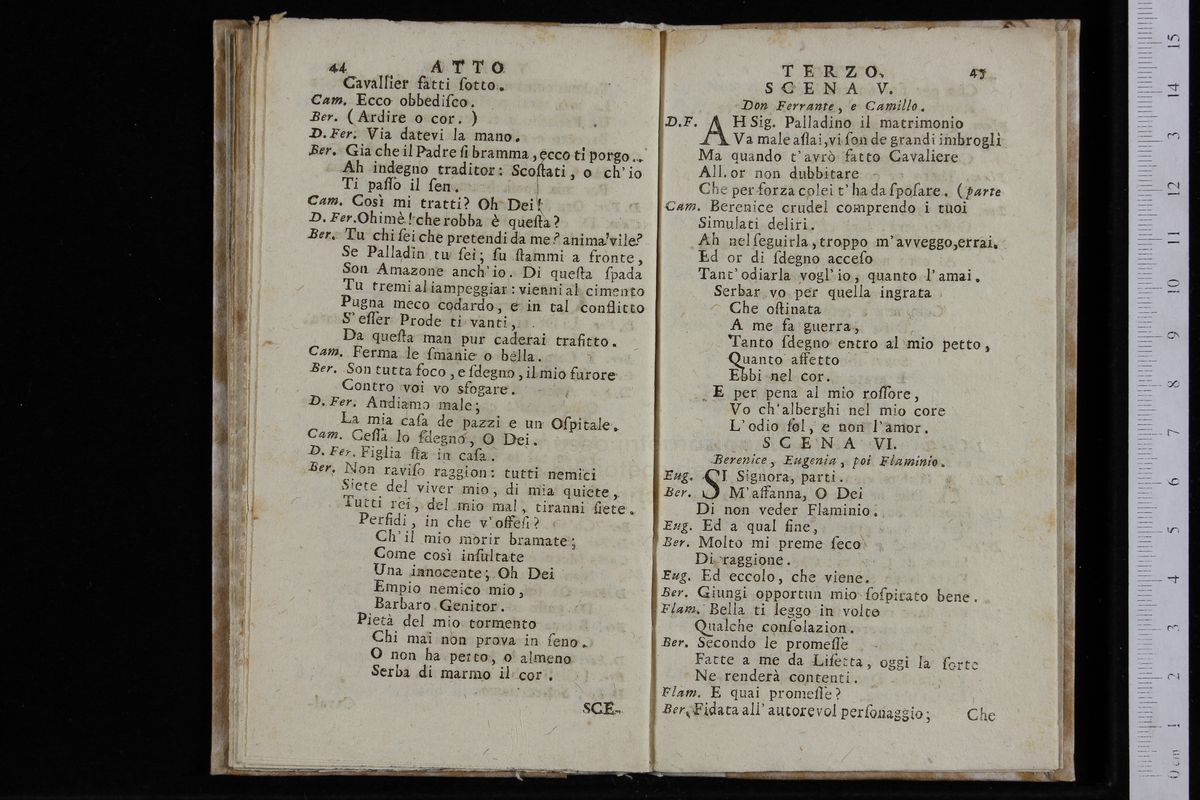 44 ATTO
Cavallier fatti ſotto.
Cam. Ecco obbediſco.
Ber. (Ardire o cor. )
D. Fer. Via datevi la mano.
Ber. Gia che il Padre ſi bramma, ecco ti porgo..
Ah indegno traditor: Scoſtati, o ch'io
Ti paſſo il ſen.
Cam. Così mi tratti? Oh Dei!
D. Fer. Ohimè! che robba è queſta?
Ber. Tu chi ſei che pretendi da me? anima vile?
Se Palladin tu ſei; ſu ſtammi a fronte,
Son Amazone anch'io. Di queſta ſpada
Tu tremi al lampeggiar: vienni al cimento
Pugna meco codardo, e in tal conflitto
S'eſſer Prode ti vanti,
Da queſta man pur caderai trafitto.
Cam. Ferma le ſmanie o bella.
Ber. Son tutta foco, e ſdegno, il mio furore
Contro voi vo sfogare.
D. Fer. Andiamo male;
La mia caſa de pazzi e un Oſpitale.
Cam. Ceſſa lo ſdegno, O Dei.
D. Fer. Figlia ſta in caſa.
Ber. Non raviſo raggion: tutti nemici
Siete del viver mio, di mia quiete,
Tutti rei, del mio mal, tiranni ſiete.
Perfidi, in che v'offeſi?
Ch'il mio morir bramate;
Come così inſultate
Una innocente; Oh Dei
Empio nemico mio,
Barbaro Genitor.
Pietà del mio tormento
Chi mai non prova in ſeno.
O non ha petto, o almeno
Serba di marmo il cor.
SCE-
TERZO. 45
SCENA V.
Don Ferrante, e Camillo.
D.F. AH Sig. Palladino il matrimonio
Va male aſſai, vi ſon de grandi imbrogli
Ma quando t'avrò fatto Cavaliere
All. or non dubbitare
Che per forza colei t'ha da ſpoſare. (parte
Cam. Berenice crudel comprendo i tuoi
Simulati deliri.
Ah nel ſeguirla, troppo m'avveggo, errai.
Ed or di ſdegno acceſo
Tant'odiarla vogl'io, quanto l'amai.
Serbar vo per quella ingrata
Che oſtinata
A me fa guerra,
Tanto ſdegno entro al mio petto,
Quanto affetto
Ebbi nel cor.
E per pena al mio roſſore,
Vo ch'alberghi nel mio core
L'odio ſol, e non l'amor.
SCENA VI.
Berenice, Eugenia, poi Flaminio.
Eug. SI Signora, parti.
Ber. M'affanna, O Dei
Di non veder Flaminio.
Eug. Ed a qual fine,
Ber. Molto mi preme ſeco
Di raggione.
Eug. Ed eccolo, che viene.
Ber. Giungi opportun mio ſoſpirato bene.
Flam. Bella ti leggo in volto
Qualche conſolazion.
Ber. Secondo le promeſſe
Fatte a me da Liſetta, oggi la ſorte
Ne renderà contenti.
Flam. E quai promeſſe?
Ber. Fidata all'autorevol perſonaggio;
Che
0 cm 1 2 3 4 5 6 7 8 9 10 11 12 13 14 15